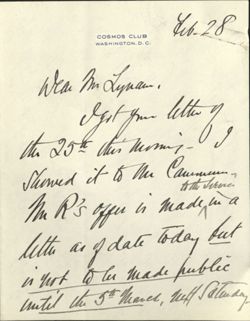 COSMOS CLUB
WASHINGTON, D.C.
Feb. 28
Dear Mr Lyman,
I got your letter of
the 25th this morning - I
showed it to the
to the
Mr R's offer is made, in a
letter as of date today but
is not to be made public
until the 5th March, next Saturday